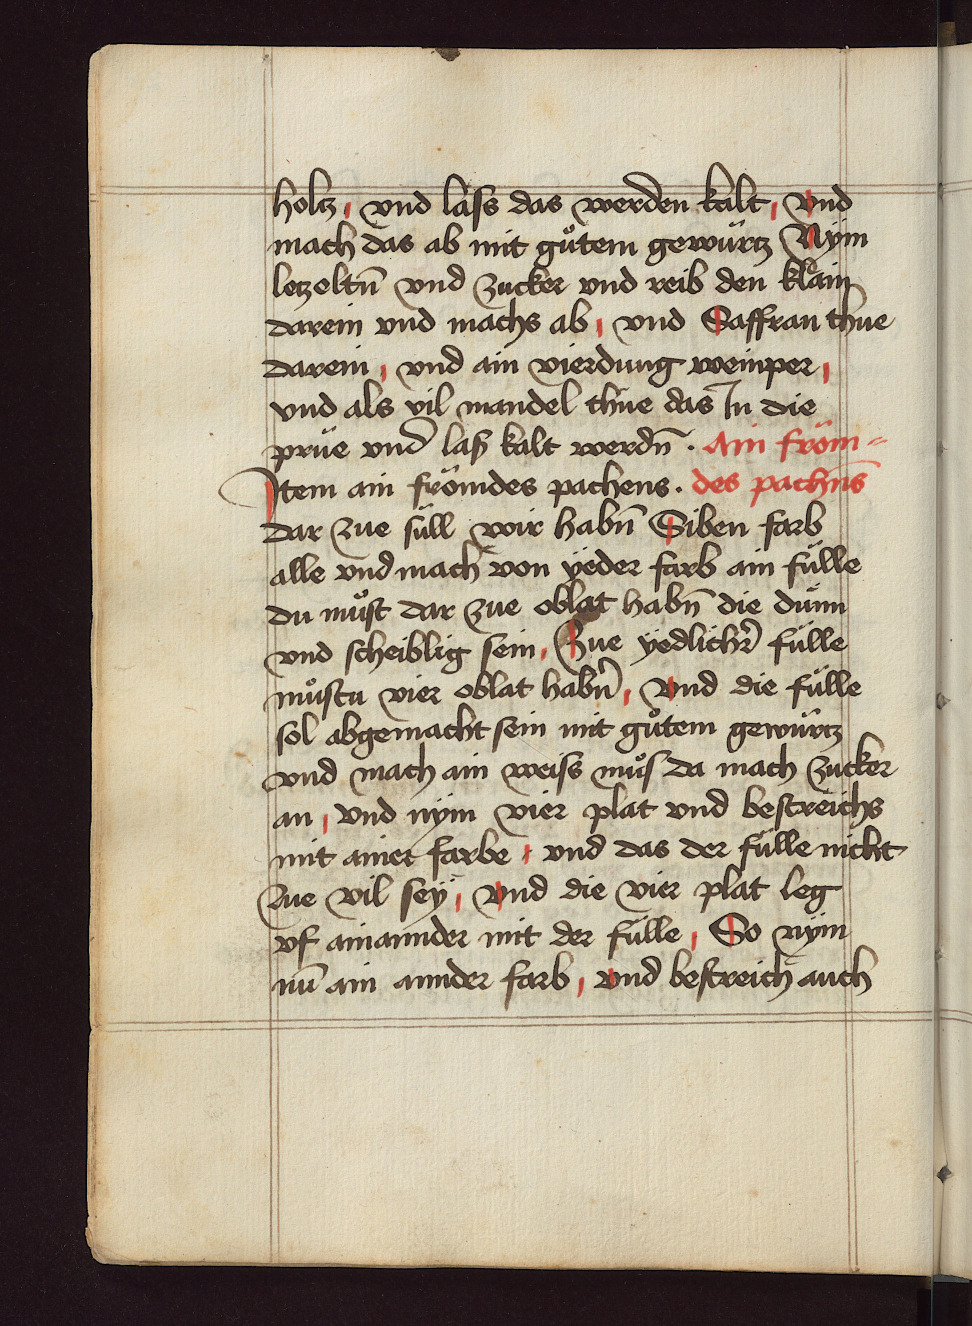 holtz, vnd lass das werden kalt, Vnd
mach das ab mit gůtem gewürtz Nÿm
letzeltn̄ vnd zucker vnd reib den klain
darein vnd machs ab, vnd Saffran thue
darein, vnd ain vierdung weinper,
vnd als vil mandel thue das In die
prüe vnd laß kalt werdn̄. Ain fröm=
Item ain frömdes pachens. des pachn̄s
dar zue süll wir habn̄ Siben farb
alle vnd mach von ÿeder farb ain fülle
du můst dar zue oblat habn̄ die dünn
vnd scheiblig sein, Zue ÿedlicher fülle
můstu vier oblat habn̄, Vnd die fülle
sol abgemacht sein mit gůtem gewürtz
vnd mach ain weiss můs da mach zucker
an, vnd nÿm vier plat vnd bestreichs
mit ainer farbe, vnd das der fülle nicht
zue vil seÿ, Vnd die vier plat leg
vf ainannder mit der fülle, So nÿm
nū ain annder farb, vnd bestreich auch